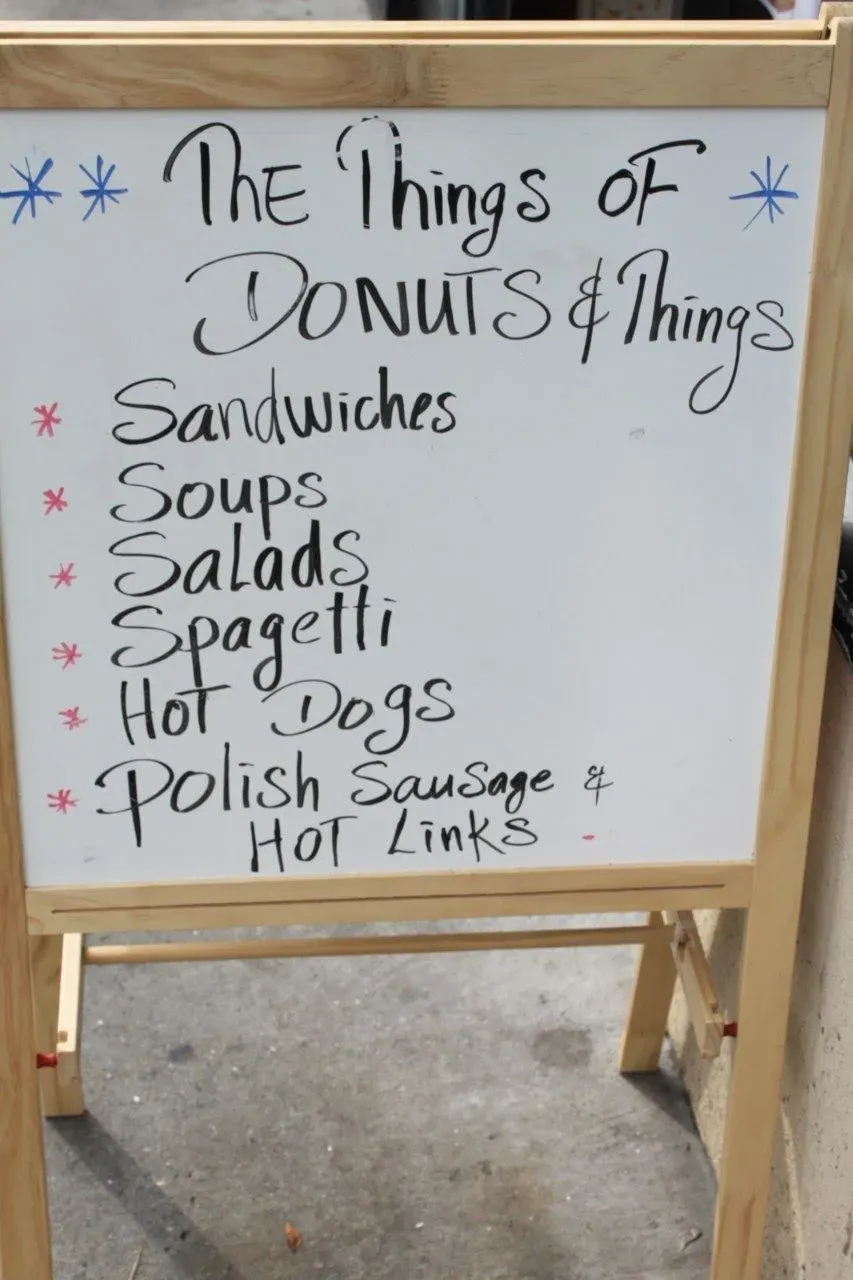 ** ThE Things OF *
DONUTS & Things
* Sandwiches
* Soups
* Salads
* Spagetti
* HOT Dogs
* Polish Sausage &
HOT Links -